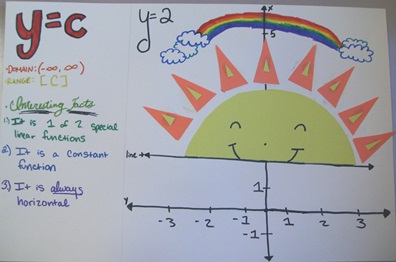 y=c
• DOMAIN: (-∞, ∞)
• RANGE: [C]
• Interesting Facts
1) It is 1 of 2 special
linear functions
2) It is a constant
function
3) It is always
horizontal
y=2
x
5
line→
1
y
-3 -2 -1 1 2 3
-1